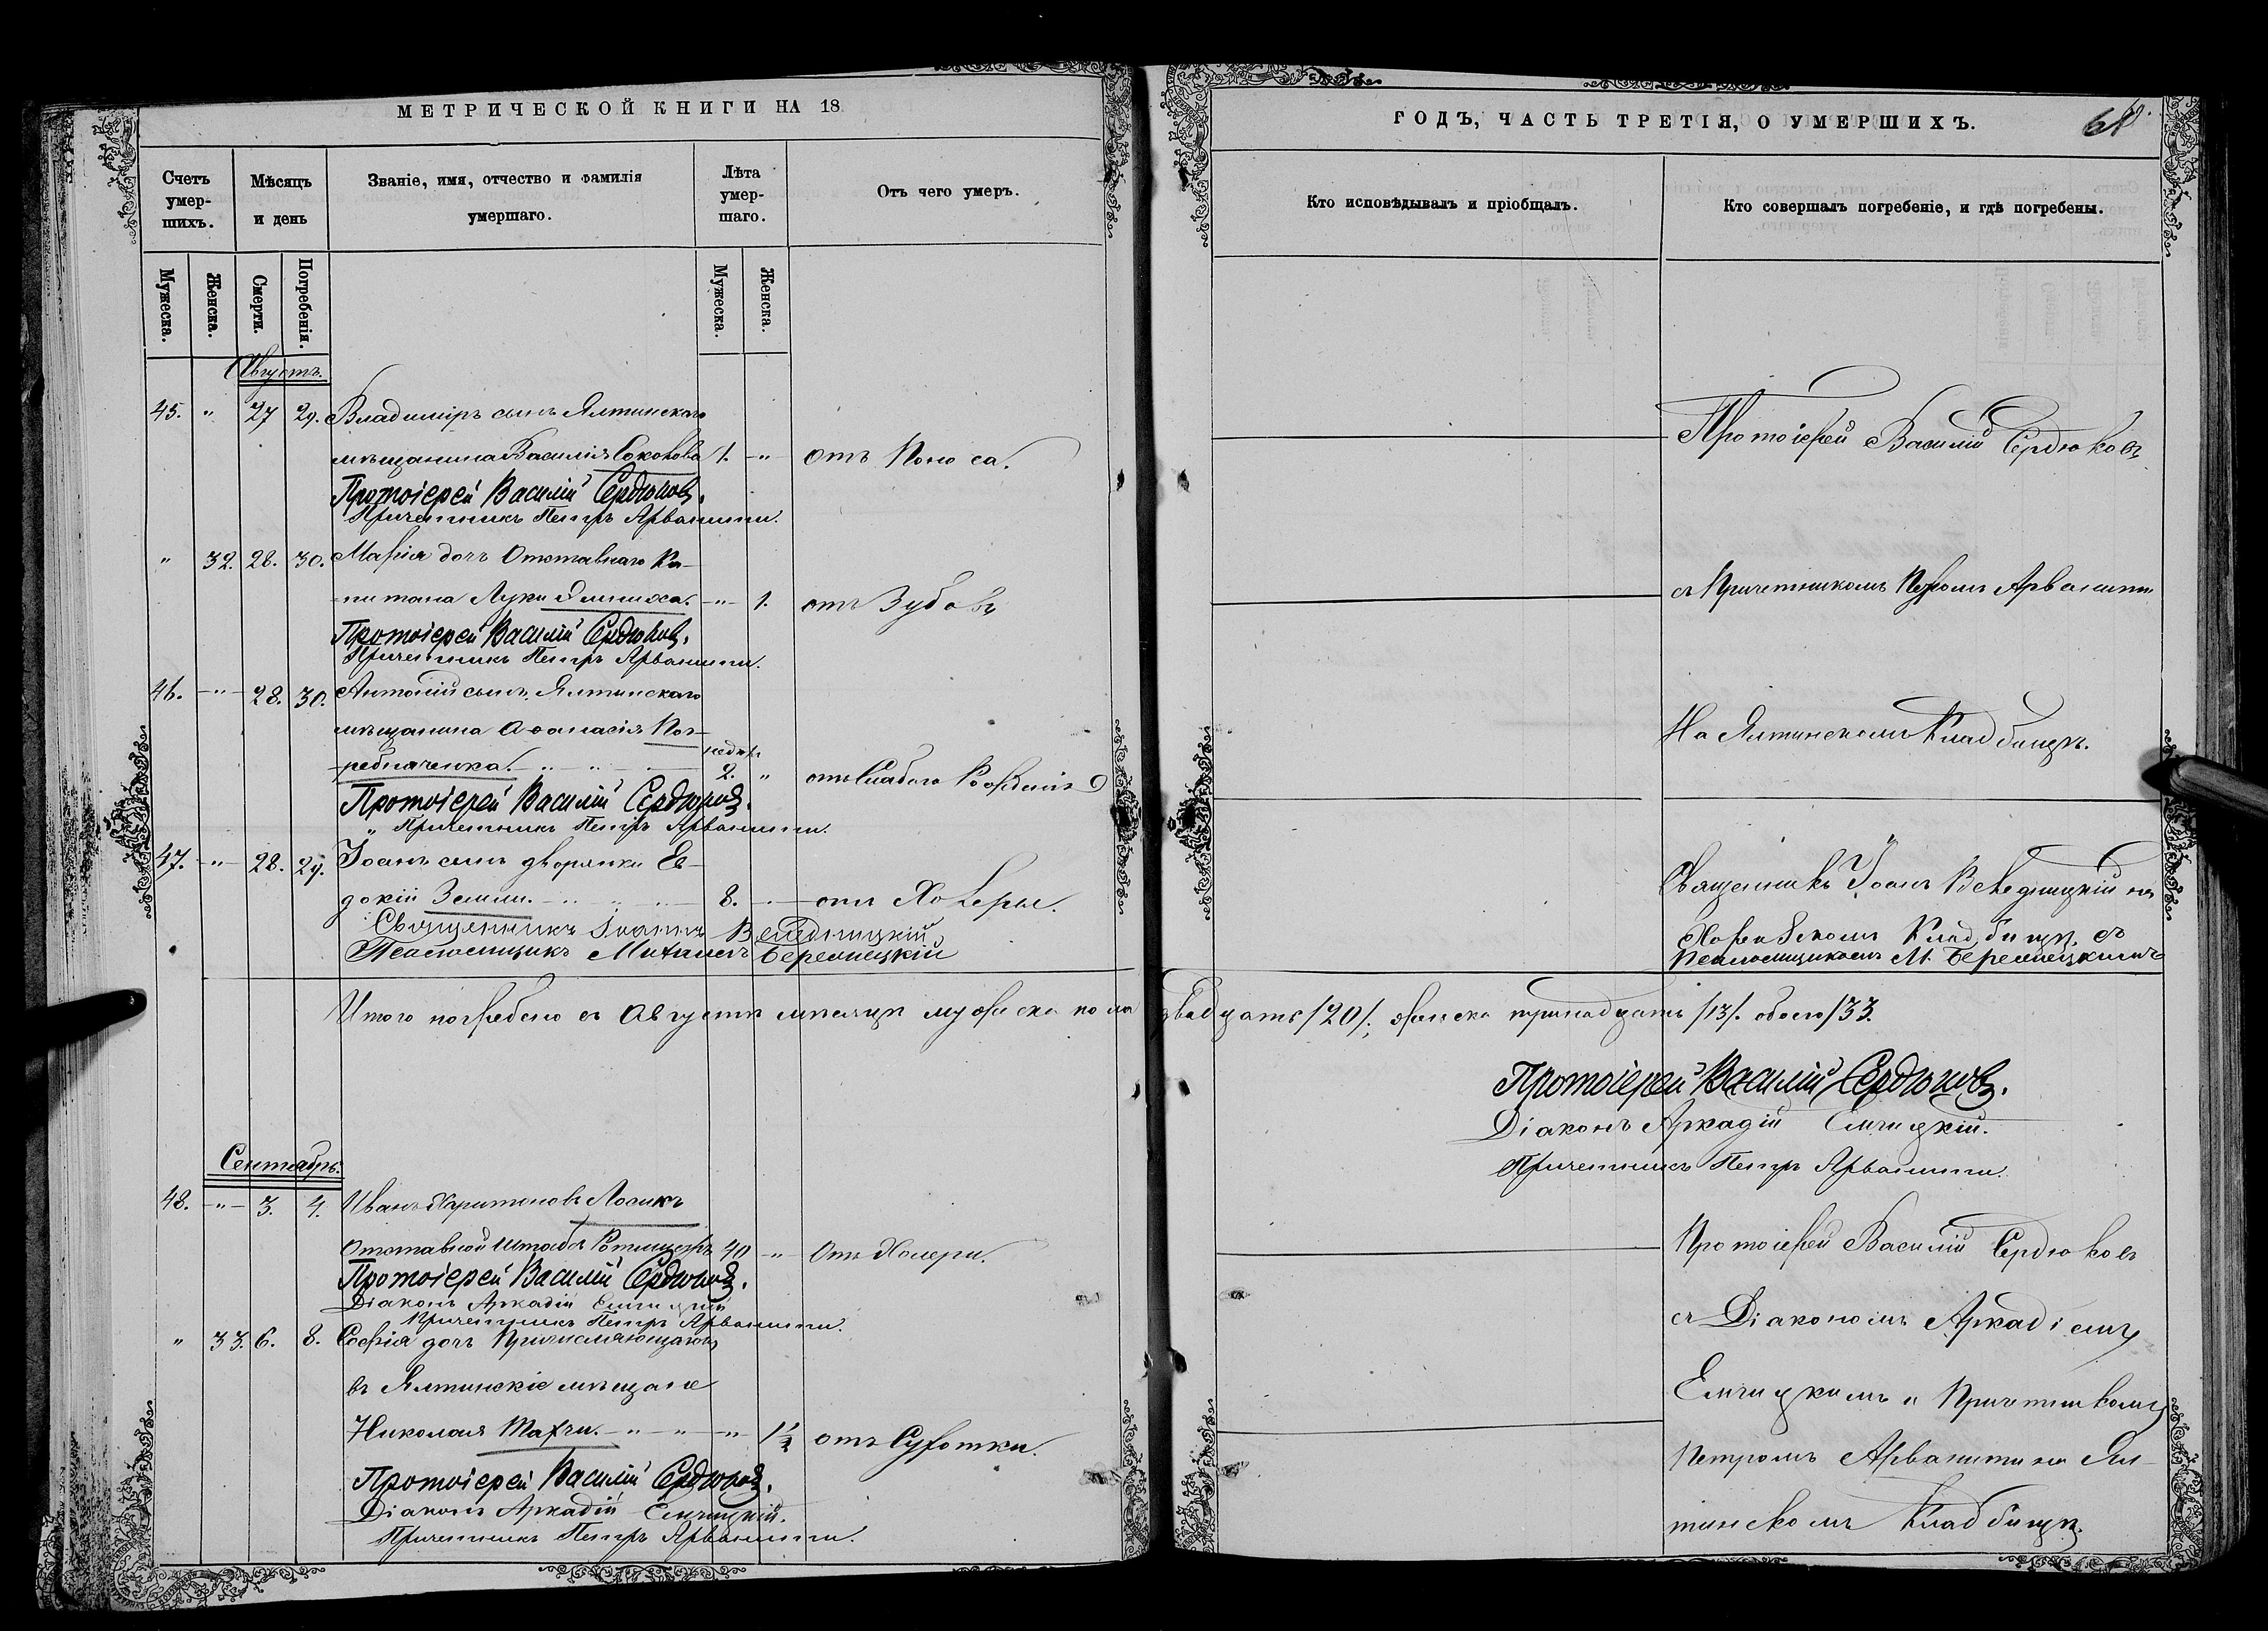 МЕТРИЧЕСКОЙ КНИГИ НА 18
Счетъ умер-шихъ.
Мѣсяцъ и день
Званіе, имя, отчество и фамилія умершаго.
Лѣта умер-шаго.
Отъ чего умеръ.
Мужеска.
Женска.
Смерти.
Погребенія.
Мужеска.
Женска.
Августъ.
45. " 27 29. Владиміръ сынъ Ялтинскаго
мѣщанина Василія Соколова 1. " отъ Поноса.
Протоіерей Василій Сердюковъ.
Причетникъ Петръ Арванити.
" 32. 28. 30. Марія дочь Отставнаго Ка-
-питана Луки " 1. отъ Зубовъ
Протоіерей Василій Сердюковъ.
Причетникъ Петръ Арванити.
46. " 28. 30. Антоній сынъ Ялтинскаго
мѣщанина Аѳанасія Пог-
-ребниченка. недѣль 2. " отъ Слабаго Рожденія
Протоіерей Василій Сердюковъ.
" Причетникъ Петръ Арванити.
47. " 28. 29. Іоанъ сынъ дворянки Ев-
докіи Земли. 8. отъ Холеры.
Священникъ Іоаннъ
Псаломщикъ Михаилъ
Итого погребено въ Августѣ мѣсяцѣ мужеска пола
Сентябрь:
48. " 3. 4. Иванъ Харитоновъ Лосикъ
Отставной Штабъ Ротмистръ 40 " Отъ Холеры.
Протоіерей Василій Сердюковъ.
Діаконъ Аркадій
Причетникъ Петръ Арванити.
" 33. 6. 8. Софія дочь Причисляющагося
въ Ялтинскіе мѣщане
Николая " " " 1½ отъ Сухотки.
Протоіерей Василій Сердюковъ.
Діаконъ Аркадій
Причетникъ Петръ Арванити.
ГОДЪ, ЧАСТЬ ТРЕТІЯ, О УМЕРШИХЪ.
68.
Кто исповѣдывалъ и пріобщалъ.
Кто совершалъ погребеніе, и гдѣ погребены.
Протоіерей Василій Сердюковъ
съ Причетникомъ Петромъ Арванити
На Ялтинскомъ Кладбищѣ.
Священникъ Іоанъ на
Кладбищѣ съ
Псаломщикомъ М.
двадцать /20/; женска тринадцать /13/. обоего /33.
Протоіерей Василій Сердюковъ.
Діаконъ Аркадій
Причетникъ Петръ Арванити.
Протоіерей Василій Сердюковъ
съ Діакономъ Аркадіемъ
и Причетникомъ
Петромъ Арванити на Ял-
тинскомъ Кладбищѣ.